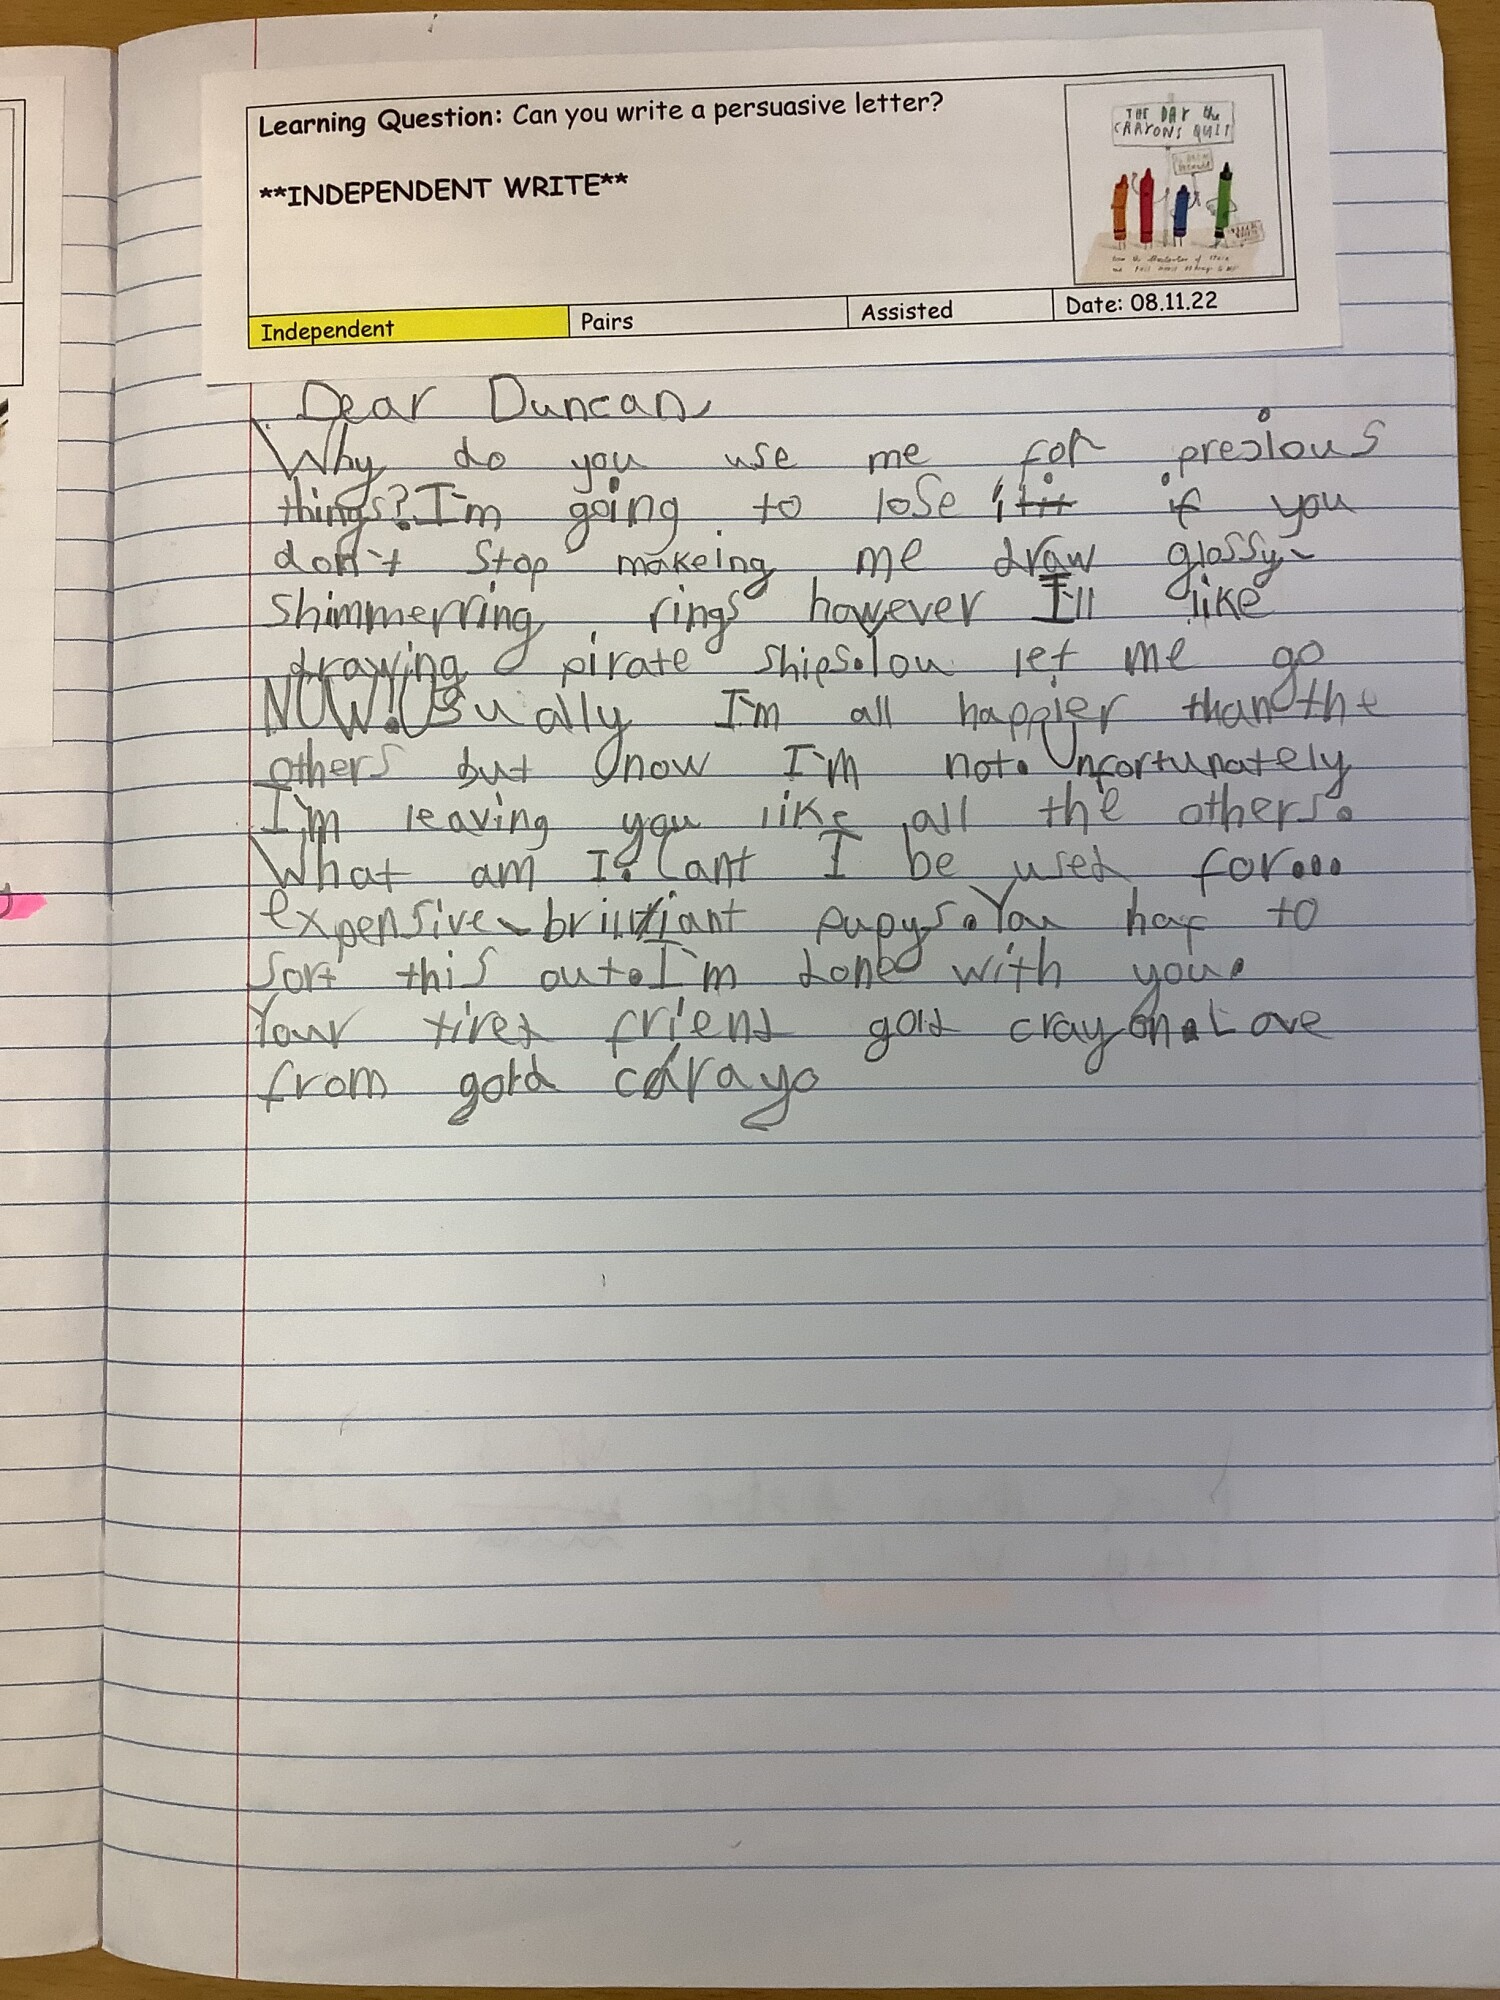 Learning Question: Can you write a persuasive letter?
**INDEPENDENT WRITE**
THE DAY the
CRAYONS QUIT
Independent
Pairs
Assisted
Date: 08.11.22
Dear Duncan,
Why do you use me for presious
things? I'm going to lose it if you
don't stop makeing me draw glossy,
shimmerring rings however I'll like
drawing pirate ships. You let me go
NOW! Usually I'm all happier than the
others but now I'm not. Unfortunately
I'm leaving you like all the others.
What am I? Cant I be used for...
expensive, brilliant pupys. You haf to
sort this out. I'm done with you.
Your tired friend gold crayon. Love
from gold crayo